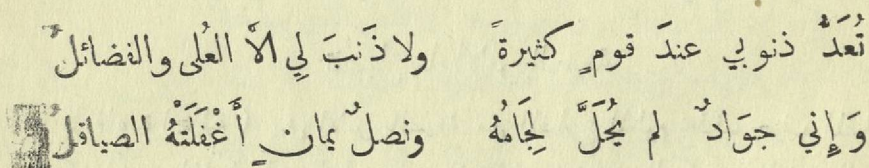 تُعَدُّ ذنوبي عندَ قومٍ كثيرةً ولا ذَنبَ لِي الاّ العُلى والفضائلُ
وَإِني جوَادٌ لم يُحَلَّ لِجَامُهُ ونصلٌ يمانٍ أَغْفَلَتْهُ الصياقلُ